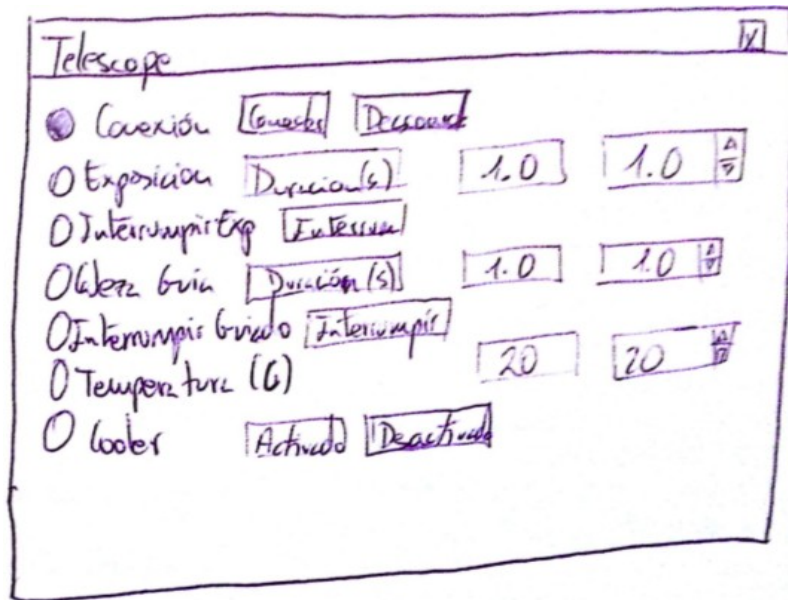 Telescope
Conexión Conectar Desconect
Exposicion Duracion(s) 1.0 1.0
Interrumpir Exp Interrum
Guía Duración (s) 1.0 1.0
Interrumpir Guiado Interrumpir
Temperatura (C) 20 20
Cooler Activado Desactivado